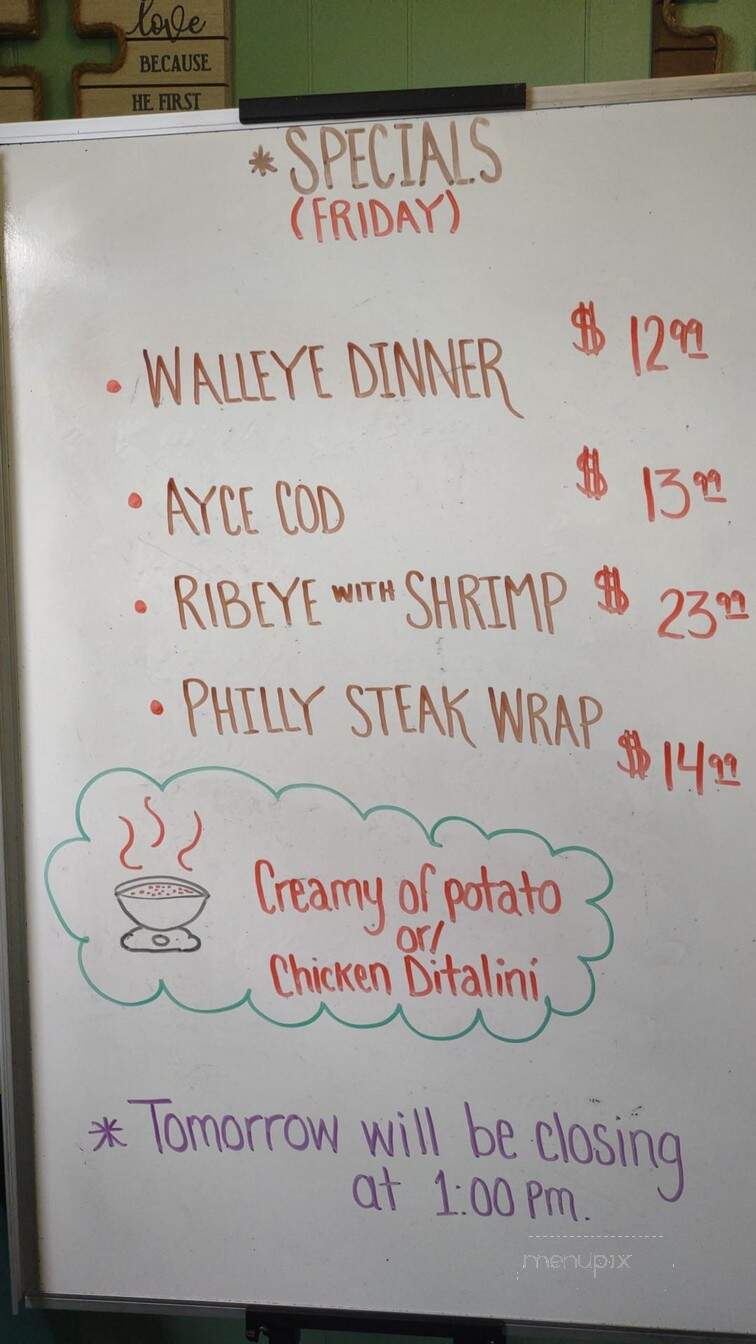 love
BECAUSE
HE FIRST
* SPECIALS
(FRIDAY)
• WALLEYE DINNER $ 12.99
• AYCE COD $ 13.99
• RIBEYE WITH SHRIMP $ 23.99
• PHILLY STEAK WRAP $ 14.99
Creamy of potato
or/
Chicken Ditalini
* Tomorrow will be closing
at 1:00 pm.
menupix